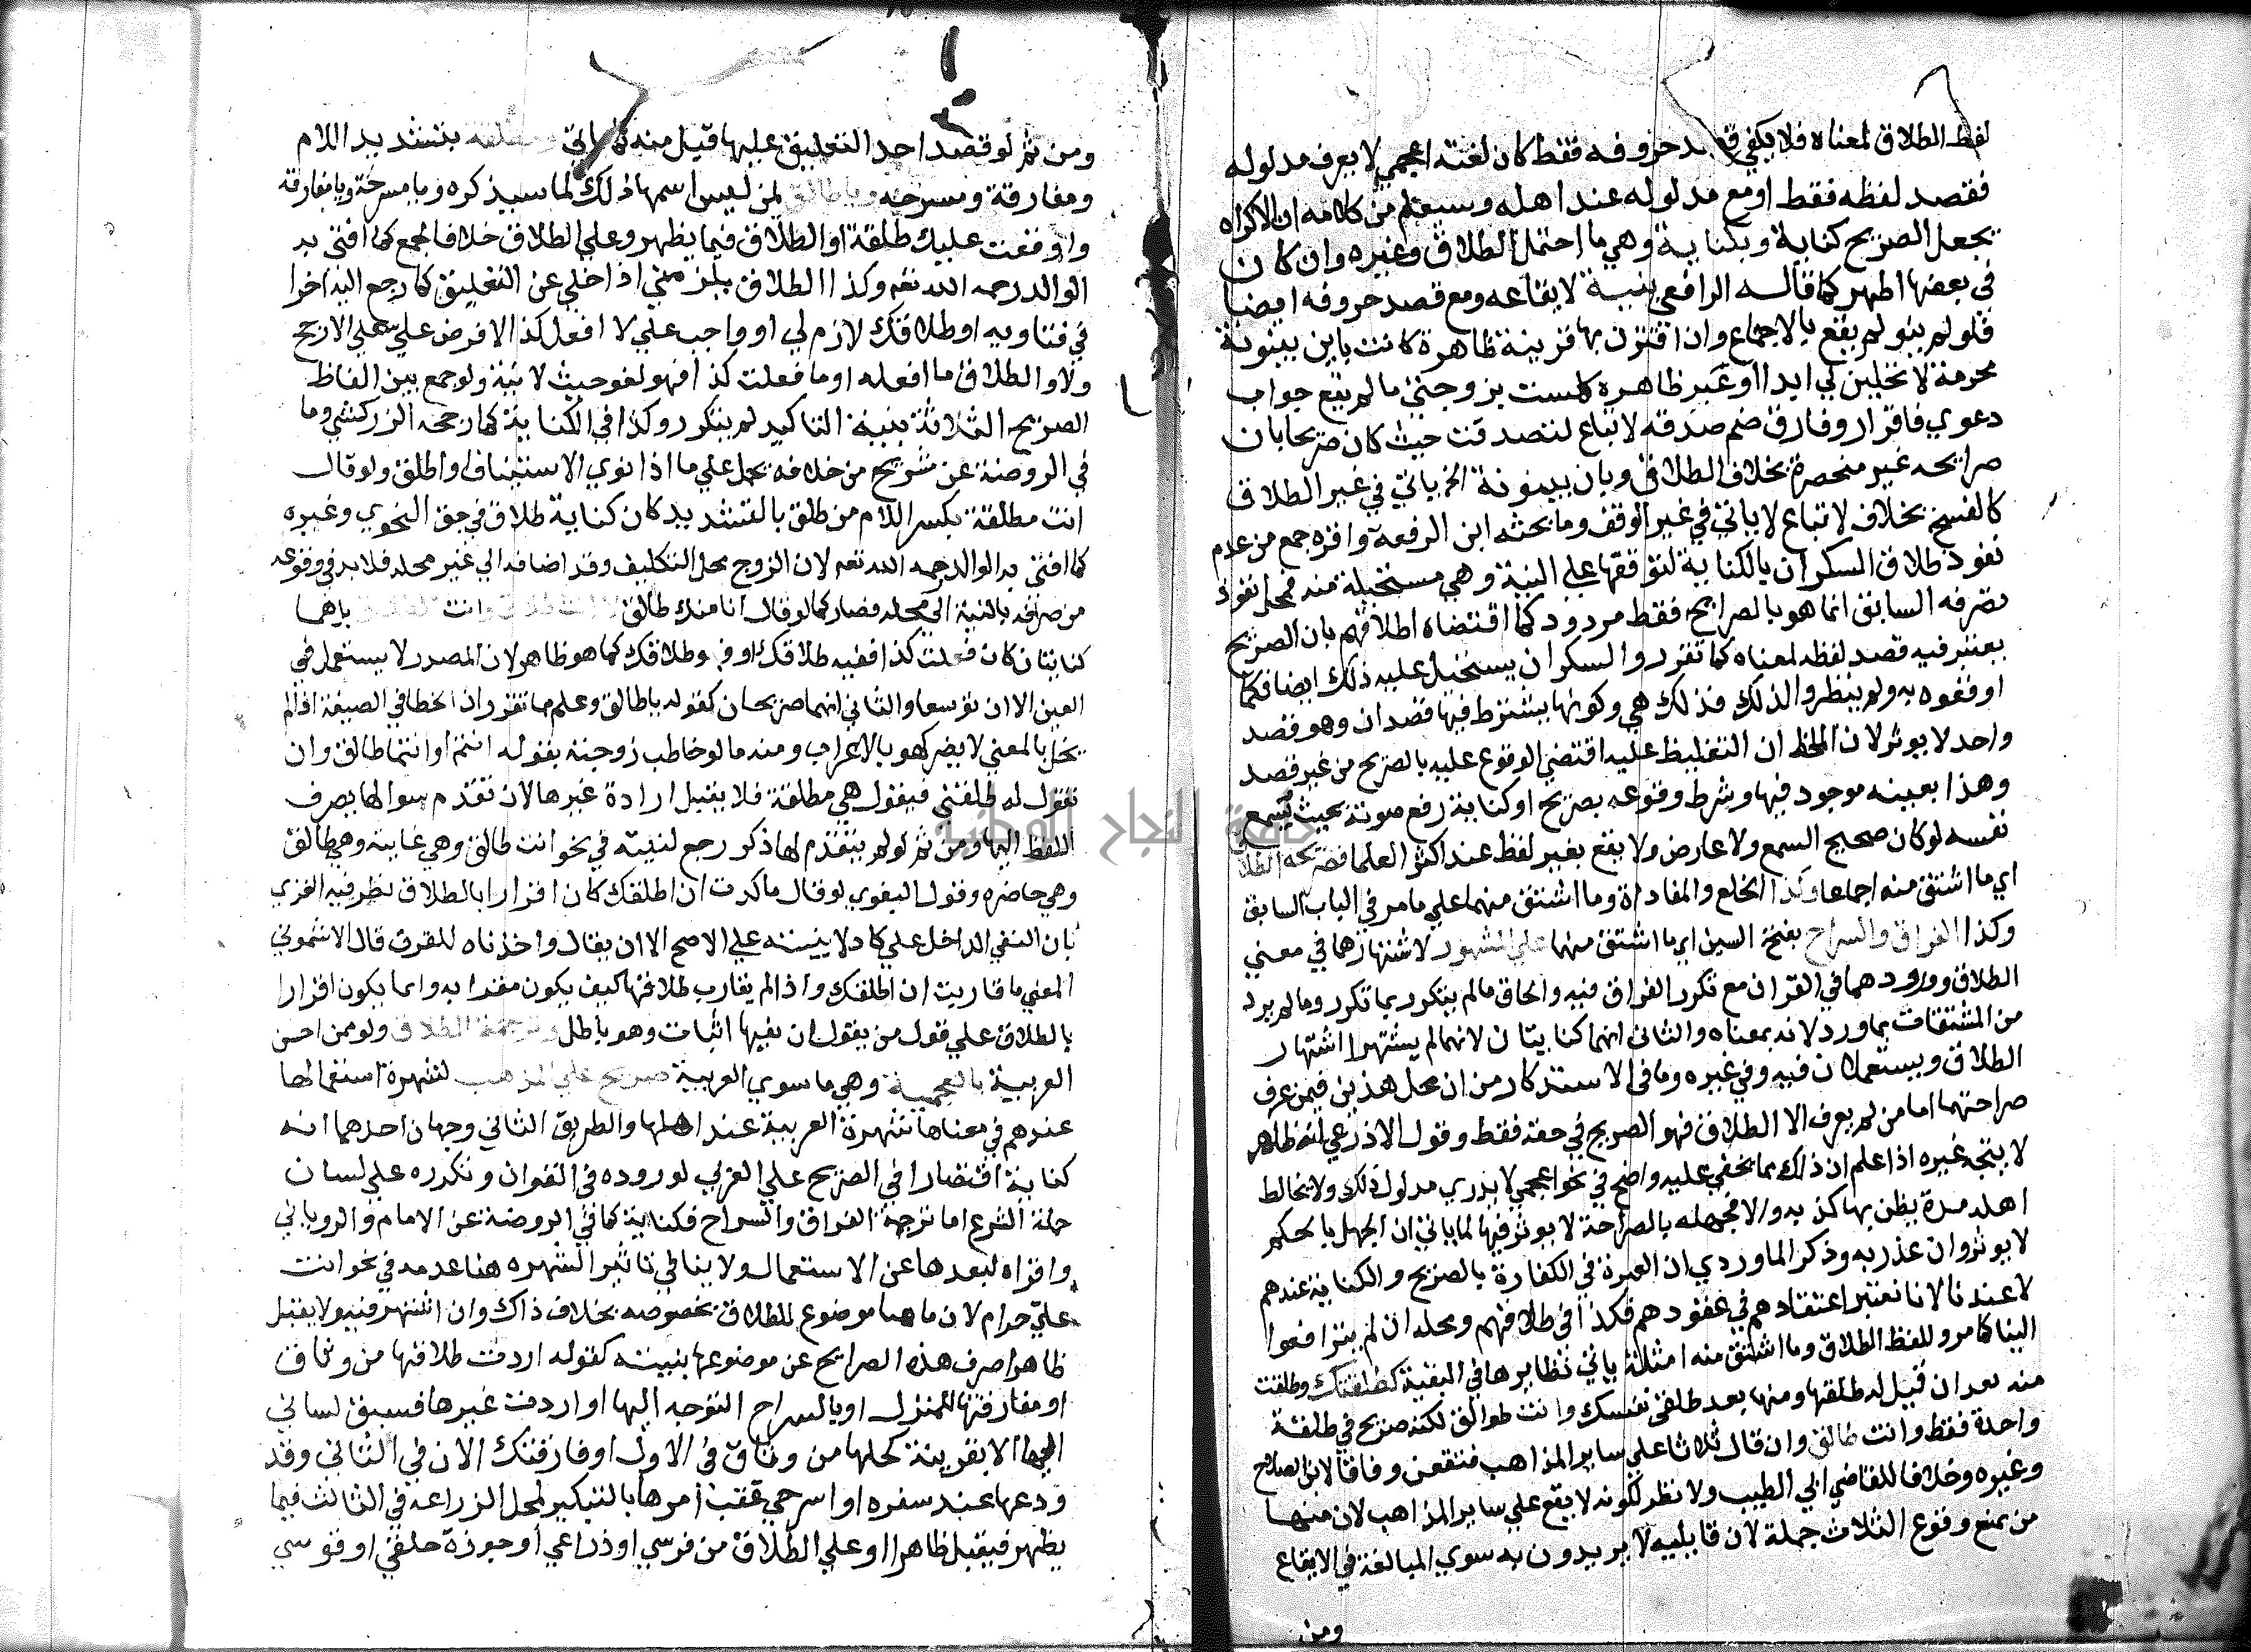 لفظ الطلاق لمعناه فلا يكفي قصد حروفه فقط كان لغته اعجمي لا يعرف مدلوله
فقصد لفظه فقط او مع مدلوله عند اهله وسيعلم من كلامه ان الاكراه
يجعل الصريح كناية وبكناية وهي ما احتمل الطلاق وغيره وان كان
في بعضها اظهر كما قاله الرافعي بنية لايقاعه ومع قصد حروفه ايضا
فلو لم ينو لم يقع بالاجماع وان اقترن بها قرينة ظاهرة كانت باين بينونة
محرمة لا تحلين لي ابدا او غير ظاهره كلست بزوجتي ما لم يقع جواب
دعوي فاقرار وفارق ضم صدقه لا تباع لتصدقت حيث كان صريحا بان
صرايحه غير منحصرة بخلاف الطلاق وبان بينونة الخ ياتي في غير الطلاق
كالفسخ بخلاف لا تباع لا ياتي في غير الوقف وما بحثه ابن الرفعة واقره جمع من عدم
نفوذ طلاق السكران بالكناية لتوقفها علي النية وهي مستحيلة منه فمحل نفوذ
تصرفه السابق انما هو بالصرايح فقط مردود كما اقتضاه اطلاقهم بان الصريح
يعتبر فيه قصد لفظه لمعناه كما تقرر والسكران يستحيل عليه ذلك ايضا فكما
اوقعوه به ولم ينظروا لذلك فذلك هي وكونها يشترط فيها قصدان وهو قصد
واحد لا يوثر لان الملحظ ان التغليظ عليه اقتضي الوقوع عليه بالصريح من غير قصد
وهذا بعينه موجود فيها وشرط وقوعه بصريح او كناية رفع صوته بحيث يسمع
نفسه لو كان صحيح السمع ولا عارض ولا يقع بغير لفظ عند اكثر العلما فصريحه الطلا
اي ما اشتق منه اجماعا وكذا الخلع والمفاداة وما اشتق منهما علي ما مر في الباب السابق
وكذا الفراق والسراح بفتح السين اي ما اشتق منها علي المشهور لاشتهارهما في معني
الطلاق وورودهما في القران مع تكرر الفراق فيه والحاق ما لم يتكرر بما تكرر وما لم يرد
من المشتقات بما ورد لانه بمعناه والثاني انهما كنايتان لانهما لم يشتهرا اشتهار
الطلاق ويستعملان فيه وفي غيره وما في الاستذكار من ان محل هذين فيمن عرف
صراحتهما اما من لم يعرف الا الطلاق فهو الصريح في حقه فقط وقول الاذرعي انه ظاهر
لا يتجه غيره اذا علم ان ذاك مما يخفي عليه واضح في نحو اعجمي لا يدري مدلول ذلك ولا يخالط
اهله مدة يظن بها كذبه والا فجهله بالصراحة لا يوثر فيها لما ياتي ان الجهل بالحكم
لا يوثر وان عذر به وذكر الماوردي ان العبرة في الكفارة بالصريح والكناية عندهم
لا عندنا لانا نعتبر اعتقادهم في عقودهم فكذا في طلاقهم ومحله ان لم يترافعوا
الينا كما مر وللفظ الطلاق وما اشتق منه امثلة ياتي نظايرها في البقية كطلقتك وطلقت
منه بعد ان قيل له طلقها ومنها بعد طلقي نفسك وانت طوالق لكنه صريح في طلقة
واحدة فقط وانت طالق وان قال ثلاثا علي ساير المذاهب فتقعن وفاقا لابن الصلاح
وغيره وخلافا للقاضي ابي الطيب ولا نظر لكونه لا يقع علي ساير المذاهب لان منها
من يمنع وقوع الثلاث جملة لان قايليه لا يريدون به سوي المبالغة في الايقاع
ومن
ومن ثم لو قصد احد التعليق عليها قبل منه كما ياتي ومطلقة بتشديد اللام
ومفارقة ومسرحه ويا طالق لمن ليس اسمها ذلك لما سيذكره ويا مسرحة ويا مفارقة
واوقعت عليك طلقة او الطلاق فيما يظهر وعلي الطلاق خلافا لجمع كما افتي به
الوالد رحمه الله تعه وكذا الطلاق يلزمني اذا خلي عن التعليق كما رجع اليه اخرا
في فتاويه او طلاقك لازم لي او واجب علي لا افعل كذا لا فرض علي علي الارجح
ولا والطلاق ما افعله او ما فعلت كذا فهو لغو حيث لا نية ولو جمع بين الفاظ
الصريح الثلاثة بنية التاكيد لم يتكرر وكذا في الكناية كما رجحه الزركشي وما
في الروضة عن شريح من خلافه يحمل علي ما اذا نوي الاستيناف او اطلق ولو قال
انت مطلقة بكسر اللام من طلق بالتشديد كان كناية طلاق في حق النحوي وغيره
كما افتي به الوالد رحمه الله تعه لان الزوج محل التكليف وقد اضافه الي غير محله فلا بد في وقوعه
من صرفه بالنية الي محله فصار كما لو قال انا منك طالق لا انت طلاق وانت الطلاق باهما
كنايتان كان فعلت كذا ففيه طلاقك او فهو طلاقك كما هو ظاهر لان المصدر لا يستعمل في
العين الا ان توسعا والثاني انهما صريحان كقوله يا طالق وعلم مما تقرر ان الخطا في الصيغة اذا لم
يخل بالمعني لا يضر كهو بالاعراب ومنه ما لو خاطب زوجته بقوله انتم او انتما طالق وان
تقول له طلقني فيقول هي مطلقة فلا يقبل ارادة غيرها لان تقدم سوالها يصرف
اللفظ اليها ومن ثم لو لم يتقدم لها ذكر رجع لنيته في نحو انت طالق وهي غايبة وهي طالق
وهي حاضره وقول البغوي لو قال ما كدت ان اطلقك كان اقرارا بالطلاق نظر فيه الغزي
بان النفي الداخل علي كاد لا يثبته علي الاصح الا ان يقال واخذناه للقرت قال الاشموني
المعني ما قاربت ان اطلقك واذا لم يقارب طلاقها كيف يكون مقرا به وانما يكون اقرارا
بالطلاق علي قول من يقول ان نفيها اثبات وهو باطل وترجمة الطلاق ولو ممن احسن
العربية بالعجمية وهي ما سوي العربية صريح علي المذهب لشهرة استعمالها
عندهم في معناها شهرة العربية عند اهلها والطريق الثاني وجهان احدهما انه
كناية اقتصارا في الصريح علي العربي لوروده في القران وتكرره علي لسان
حملة الشرع اما ترجمة الفراق والسراح فكناية كما في الروضة عن الامام والروياني
واقراه لبعدها عن الاستعمال ولا ينافي تاثير الشهره هنا عدمه في نحو انت
علي حرام لان ما هنا موضوع للطلاق بخصوصه بخلاف ذاك وان اشتهر فيه ولا يقبل
ظاهرا صرف هذه الصرايح عن موضوعها بنيته كقوله اردت طلاقها من وثاق
او مفارقتها للمنزل او بالسراح التوجه اليها او اردت غيرها فسبق لساني
اليها الا بقرينة كحلها من وثاق في الاول او فارقتك الان في الثاني وقد
ودعها عند سفره او اسرحي عقب امرها بالتبكير لمحل الزراعه في الثالث فيما
يظهر فيقبل ظاهرا او علي الطلاق من فرسي او ذراعي او جوزة حلقي او قوسي